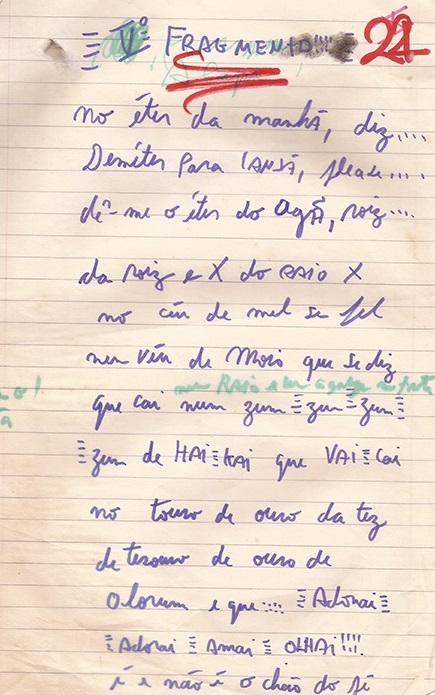 Vº FRAGMENTO!!!! 24
no éter da manhã, diz....
Deméter para IANSÃ, please....
dê-me o éter do agã, roiz....
da roiz e X do RAIO X
no céu de mel se fel
nem véu de Mois que se diz
nem RAIO e um
que cai num zum zum zum
zum de HAI KAI que VAI cai
no touro de ouro da tez
de tesouro de ouro de
Olorum e que.... Adonai
Adorai Amai OLHAI!!!!
é e não é o chão do si